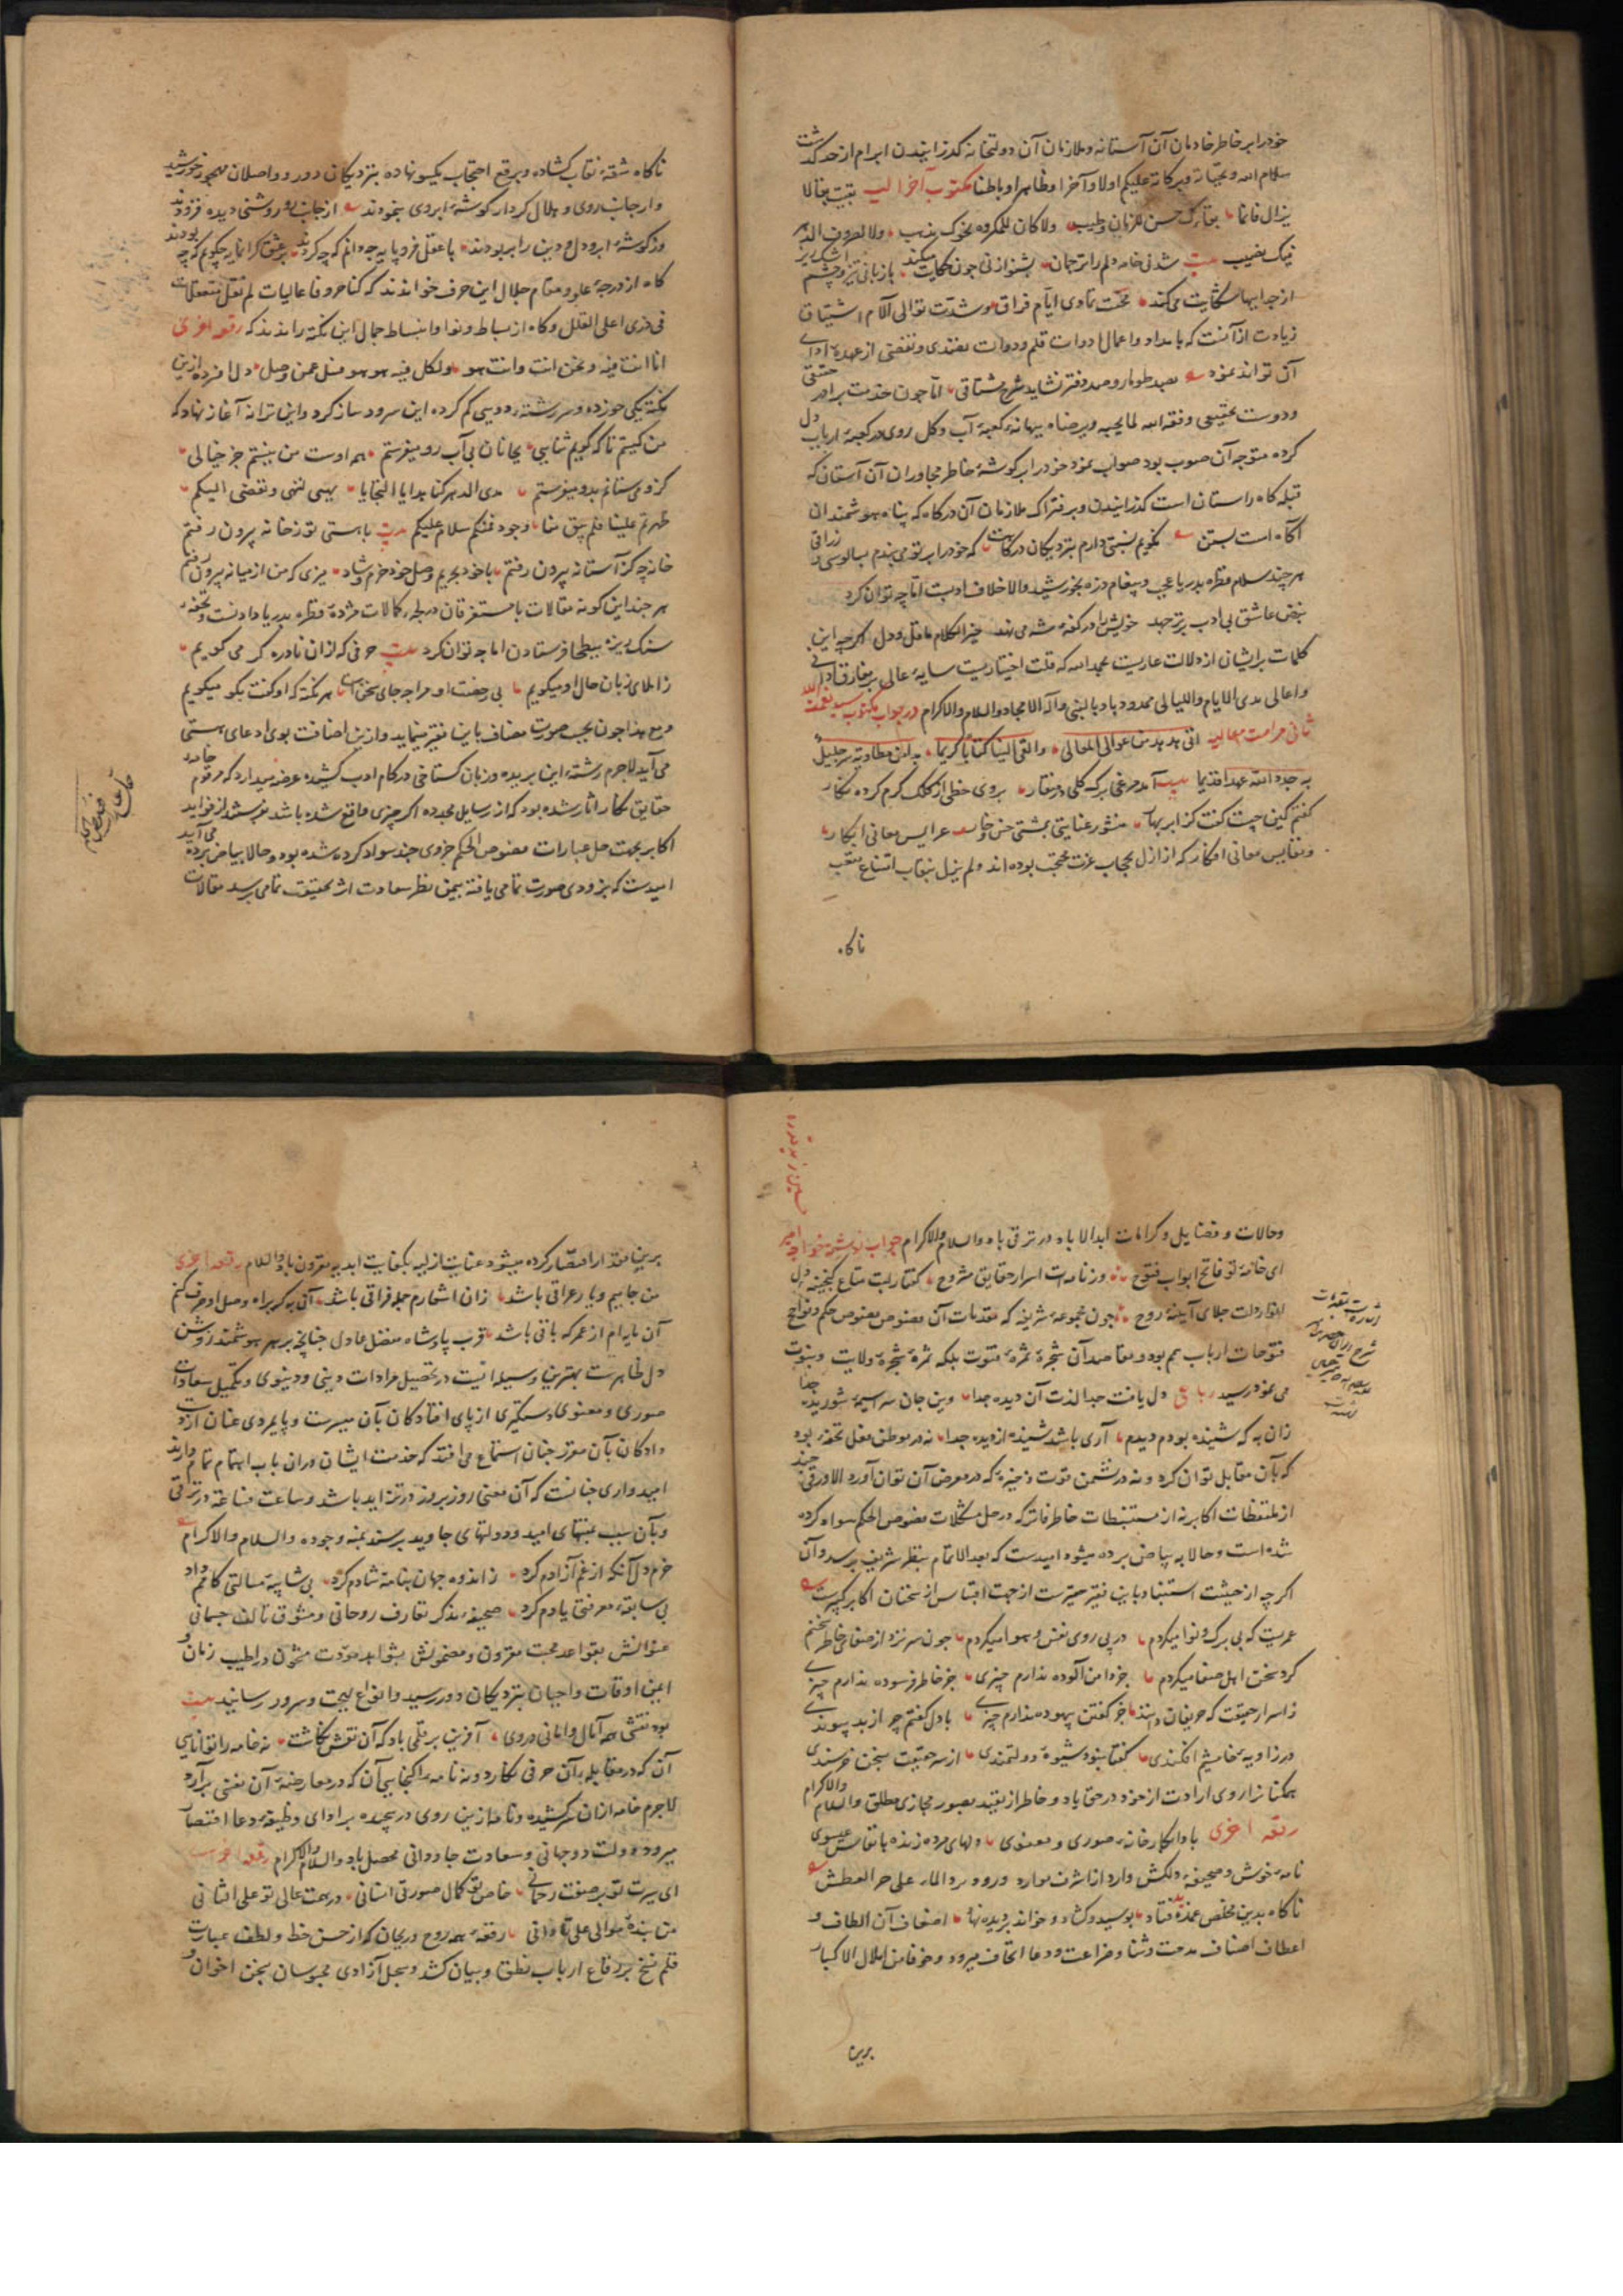 خود را بر خاطر خادمان آن آستانه و ملازمان آن دولتخانه گذرانیدن ابرام از حد گذشت
سلام الله و تحیاته و برکاته علیکم اولا و آخرا و ظاهرا و باطنا مکتوب آخر الیه بقیت بقالا
یزال فانما بقاؤک حسن للزمان وطیب ولا کان للمکروه نحوک مذهب ولا لصروف الدهر
فیک نصیب بیت شد نی خامه دلم را ترجمان بشنو از نی چون حکایت میکند با زبانی تیز و چشم اشک ریز
از جداییها شکایت می کند محنت تمادی ایام فراق و شدت توالی آلام اشتیاق
زیادت از آنست که بامداد و اعمال دوات قلم و دوات مفتدی و تفصی از عهده ادای
آن تواند نمود بصد طومار و صد دفتر نشاید شرح مشتاقی اما چون خدمت برادر حقیقی
و دوست تحقیقی وفقه الله لما یحبه و یرضاه ببهانه کعبه آب و گل روی در کعبه ارباب دل
کرده متوجه آن صوب بود صواب نمود خود را بر گوشه خاطر مجاوران آن آستان که
قبله گاه راستان است گذرانیدن و بر فتراک ملازمان آن درگاه که پناه هوشمندان
آگاه است بستن نگویم نسبتی دارم بنزدیکان درگاهت که خود را بر تو می بندم بسالوسی و زراقی
هر چند سلام قطره بدریا عجب و پیغام ذره بخورشید والا خلاف ادبست اما چه توان کرد
نبض عاشق بی ادب بر می جهد خویش را در کفه شه می نهد خیر الکلام ما قل و دل اگر چه این
کلمات پریشان از دلالت عاریست بحمد الله که قلت اختیاریست سایه عالی بر مفارق ادانی
و اعالی مدی الایام واللیالی ممدود باد بالنبی و آله الامجاد والسلام والاکرام در جواب مکتوب سید نعمت الله
ثانی حرامت معالیه اتی هدهد من عوالی المعالی والقی الینا کتابا کریما
به جدد الله عهدا قدیما بیت آمد مرغی برگ گلی در منقار بروی خطی از کلک کرم کرده نگار
گفتم کین چیست گفت کز ابر بهار منشور عنایتی بمشتی خس و خار عرایس معانی ابکار
و نفایس معانی افکار که از ازل بحجاب عزت محتجب بوده اند و لم یزل بنقاب امتناع منتقب
ناگاه
ناگاه شقه نقاب گشاده و برقع احتجاب یکسو نهاده بنزدیکان دور و واصلان مهجور خورشید
وار جانب روی و هلال کردار گوشه ابروی بنمودند از جانب رو روشنی دیده فزودند
وز گوشه ابرو دل و دین را بربودند با عقل فرومایه چه دانم که چه کردند بر عشق گرانمایه چگویم که چه بودند
گاه از درجه علو و مقام جلال این حرف خواندند که کنا حروفا عالیات لم نقل متعلقات
فی ذری اعلی القلل و گاه از بساط دنو و انبساط جمال این نکته راندند که رقعه اخری
انا انت فیه و نحن انت و انت هو والکل فیه هو هو فسل عمن وصل دل افسرده ازین
نکته یکی خورده و سر رشته دویی گم کرده این سرود ساز کرد و این ترانه آغاز نهاد که
من کیستم تا که گویم ثنایی بجانان بی آب رو میفرستم همه اوست من نیستم جز خیالی
کزو می ستانم بدو میفرستم مدی الدهر کنا هدایا التحایا
ظهرتم علینا فلم یبق منا وجود فمنکم سلام علیکم بیت با هستی تو ز خانه بیرون رفتم
خانه چه کز آستانه بیرون رفتم با خود بحریم وصل خود خرم و شاد میزی که من از میانه بیرون رفتم
هر چند این گونه مقالات با مستغرقان در لجه کمالات مژده قطره بدریا دادنست و تحفه
سنگ ریزه ببطحا فرستادن اما چه توان کرد بیت حرفی که ازان نادره گر می گویم
ز املای زبان حال او میگویم بی رخصت او مرا چه جای سخن است هر نکته که او گفت بگو میگویم
و مع هذا چون بحسب صورت مضاف باین فقیر مینماید و ازین اضافت بوی ادعای هستی
می آید لاجرم رشته این بریده و زبان گستاخی در کام ادب کشیده عرضه میدارد که مرقوم خامه
حقایق نگار آثار شده بود که از رسایل مجدده اگر چیزی واقع شده باشد بفرستد از فواید
اکابر بجهت حل عبارات فصوص الحکم جزوی چند سواد کرده شده بود و حالا ببیاض برده می آید
امیدست که بزودی صورت تمامی یافته بیمن نظر سعادت اثر بحقیقت تمامی برسد مقالات
و حالات و فضایل و کرامات ابد الاباد در ترقی باد والسلام والاکرام جواب نوشته خواجه امیر
ای خامه تو فاتح ابواب فتوح وز نامه ات اسرار حقایق مشروح گفتار لبت متاع گنجینه دل
انوار دلت جلای آیینه روح چون مجموعه شریفه که مقدمات آن فصوص نصوص حکم و نواتج
فتوحات ارباب همم بود و مقاصد آن شجره ثمره فتوت بلکه ثمره شجره ولایت و نبوت
می نمود رسید رباعی دل یافت جدا لذت آن دیده جدا وین جان سراسیمه شوریده جدا
زان به که شنیده بودم دیدم آری باشد شنیده از دیده جدا نه در موطن فعل تحفه بود
که بآن مقابل توان کرد و نه در نشیمن قوت ذخیره که در معرض آن توان آورد الا ورقی چند
از ملتقطات اکابر نه از مستنبطات خاطر فاتر که در حل مشکلات فصوص الحکم سواد کرده
شده است و حالا به بیاض برده میشود امیدست که بعد الاتمام بنظر شریف برسد و آن
اگر چه از حیثیت استناد باین فقیر حقیرست از جهت اقتباس از سخنان اکابر کبیرست
عمریست که بی برگ و نوا میگردم در پی روی نفس و هوا میگردم چون سر نزد از صفای خاطر سخنم
گرد سخن اهل صفا میگردم جز دامن آلوده ندارم چیزی جز خاطر فرسوده ندارم چیزی
ز اسرار حقیقت که حریفان دانند جز گفتن بیهوده ندارم چیزی با دل گفتم چو از بد پیوندی
در زاویه خامشیم افکندی گفتا بنود شیوه دولتمندی از سر حقیقت بسخن خرسندی
همگنان را روی ارادت از خود در حق باد و خاطر از تقید بصور مجازی مطلق والسلام والاکرام
رقعه اخری باد از کارخانه صوری و معنوی دلهای مرده زنده بانفاس عیسوی
نامه خوش و صحیفه دلکش وارد از اشرف موارد ورود برد الماء علی حر العطش
ناگاه بدین مخلص غمزده فتاد بوسید و گشاد و خواند و بر دیده نهاد اضعاف آن الطاف و
اعطاف اصناف مدحت و ثنا و ضراعت و دعا اتحاف میرود و خوفا من املال الاکبار
برین
برین مقدار اقتصار کرده میشود عنایت ازلیه بکفایت ابدیه مقرون باد والسلام رقعه اخری
من جامیم و یار عراقی باشد زان اشعارم جمله فراقی باشد آن به که براه وصل او صرف کنم
آن مایه ام از عمر که باقی باشد قرب پادشاه مفضل عادل چنانچه بر هر هوشمند روشن
دل ظاهرست بهترین وسیله ایست در تحصیل مرادات دینی و دنیوی و تکمیل سعادات
صوری و معنوی دستگیری از پای افتادگان بآن میسرست و پایمردی عنان از دست
دادگان بآن مقرر چنان استماع می افتد که خدمت ایشان دران باب اهتمام تمام دارند
امیدواری چنانست که آن معنی روز بروز در تزاید باشد و ساعت فساعة در ترقی
و بآن سبب بمنتهای امید و دولتهای جاوید برسند بمنه وجوده والسلام والاکرام
خرم دل آنکه از غم آزادم کرد ز اندوه جهان بنامه شادم کرد بی شایبه مسالتی کامم داد
بی سابقه معرفتی یادم کرد صحیفه مذکر تعارف روحانی و مشوق تالف جسمانی
عنوانش بقواعد محبت مقرون و مضمونش بشواهد مودت مشحون در اطیب زمان و
ایمن اوقات و احیان بنزدیکان دور رسید و انواع بهجت و سرور رسانید بیت
بود نقش همه آمال و امانی در وی آفرین بر قلمی باد که آن نقش نگاشت نه خامه را توانایی
آن که در مقابله آن حرفی نگارد و نه نامه را گنجایی آن که در معارضه آن نقشی برآرد
لاجرم خامه ازان سر کشیده و نامه ازین روی در پیچیده بر ادای وظیفه دعا اقتصار
میرود دولت دو جهانی و سعادت جاودانی محصل باد والسلام والاکرام رقعه اخری
ای سیرت تو بر صفت رحمانی خاص تو کمال صورت انسانی در همت عالی تو علی الثانی
من بنده موالی علی تا دانی رقعه همه روح و ریحان که از حسن خط و لطف عبارت
قلم نسخ بر رقاع ارباب نطق و بیان کشد و سجل آزادی محبوسان سجن اخوان و